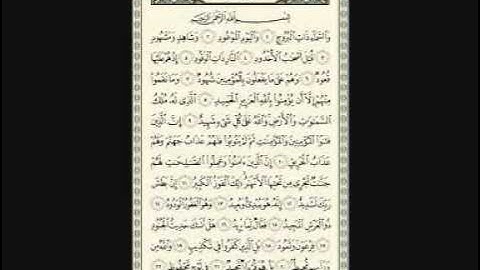 بِسْمِ ٱللَّهِ ٱلرَّحْمَٰنِ ٱلرَّحِيمِ
وَٱلسَّمَآءِ ذَاتِ ٱلْبُرُوجِ ١ وَٱلْيَوْمِ ٱلْمَوْعُودِ ٢ وَشَاهِدٍ وَمَشْهُودٍ
٣ قُتِلَ أَصْحَٰبُ ٱلْأُخْدُودِ ٤ ٱلنَّارِ ذَاتِ ٱلْوَقُودِ ٥ إِذْ هُمْ عَلَيْهَا
قُعُودٌ ٦ وَهُمْ عَلَىٰ مَا يَفْعَلُونَ بِٱلْمُؤْمِنِينَ شُهُودٌ ٧ وَمَا نَقَمُوا۟
مِنْهُمْ إِلَّآ أَن يُؤْمِنُوا۟ بِٱللَّهِ ٱلْعَزِيزِ ٱلْحَمِيدِ ٨ ٱلَّذِى لَهُۥ مُلْكُ
ٱلسَّمَٰوَٰتِ وَٱلْأَرْضِ وَٱللَّهُ عَلَىٰ كُلِّ شَىْءٍ شَهِيدٌ ٩ إِنَّ ٱلَّذِينَ
فَتَنُوا۟ ٱلْمُؤْمِنِينَ وَٱلْمُؤْمِنَٰتِ ثُمَّ لَمْ يَتُوبُوا۟ فَلَهُمْ عَذَابُ جَهَنَّمَ وَلَهُمْ
عَذَابُ ٱلْحَرِيقِ ١٠ إِنَّ ٱلَّذِينَ ءَامَنُوا۟ وَعَمِلُوا۟ ٱلصَّٰلِحَٰتِ لَهُمْ
جَنَّٰتٌ تَجْرِى مِن تَحْتِهَا ٱلْأَنْهَٰرُ ذَٰلِكَ ٱلْفَوْزُ ٱلْكَبِيرُ ١١ إِنَّ بَطْشَ
رَبِّكَ لَشَدِيدٌ ١٢ إِنَّهُۥ هُوَ يُبْدِئُ وَيُعِيدُ ١٣ وَهُوَ ٱلْغَفُورُ ٱلْوَدُودُ ١٤
ذُو ٱلْعَرْشِ ٱلْمَجِيدُ ١٥ فَعَّالٌ لِّمَا يُرِيدُ ١٦ هَلْ أَتَىٰكَ حَدِيثُ ٱلْجُنُودِ
١٧ فِرْعَوْنَ وَثَمُودَ ١٨ بَلِ ٱلَّذِينَ كَفَرُوا۟ فِى تَكْذِيبٍ ١٩ وَٱللَّهُ مِن
وَرَآئِهِم مُّحِيطٌۢ ٢٠ بَلْ هُوَ قُرْءَانٌ مَّجِيدٌ ٢١ فِى لَوْحٍ مَّحْفُوظٍۭ ٢٢